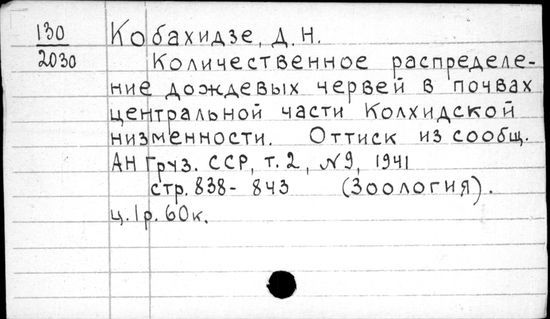 130 Кобахидзе, Д. Н.
2030 Количественное распределе-
ние дождевых червей в почвах
центральной части Колхидской
низменности. Оттиск из сообщ.
АН Груз. ССР, т. 2, №9, 1941
стр. 838- 843 (Зоология).
ц. 1 р. 60 к.